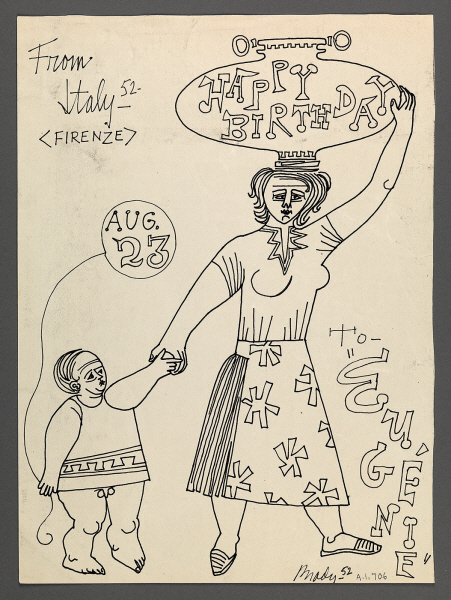 From
Italy 52
<FIRENZE>
HAPPY
BIRTHDAY
AUG.
23
To-
"EUGÉNIE"
Brady-52
A.1.706